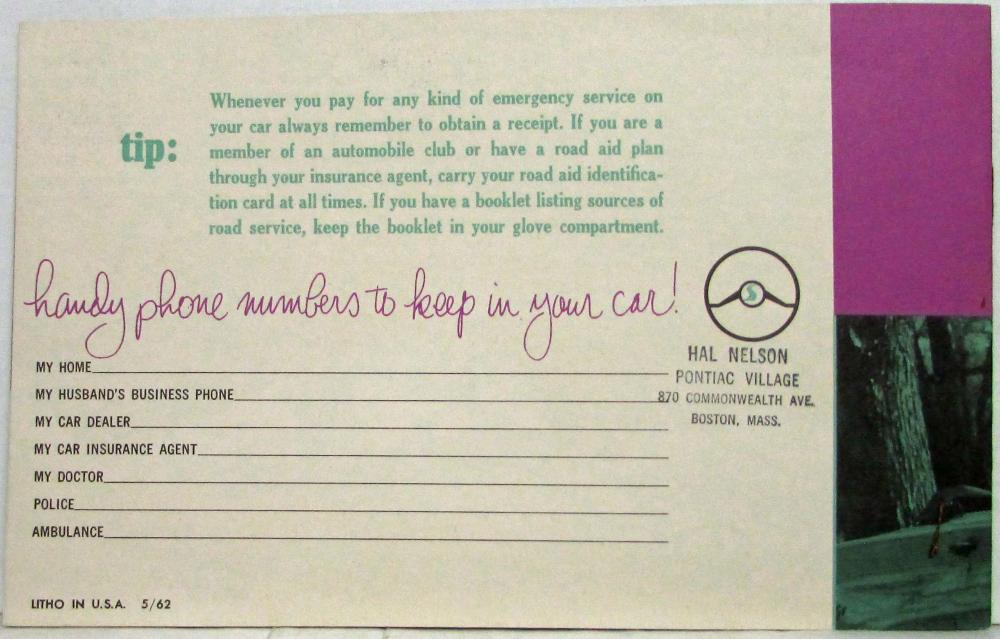 tip:
Whenever you pay for any kind of emergency service on
your car always remember to obtain a receipt. If you are a
member of an automobile club or have a road aid plan
through your insurance agent, carry your road aid identifica-
tion card at all times. If you have a booklet listing sources of
road service, keep the booklet in your glove compartment.
handy phone numbers to keep in your car!
S
HAL NELSON
PONTIAC VILLAGE
870 COMMONWEALTH AVE.
BOSTON, MASS.
MY HOME
MY HUSBAND'S BUSINESS PHONE
MY CAR DEALER
MY CAR INSURANCE AGENT
MY DOCTOR
POLICE
AMBULANCE
LITHO IN U.S.A. 5/62